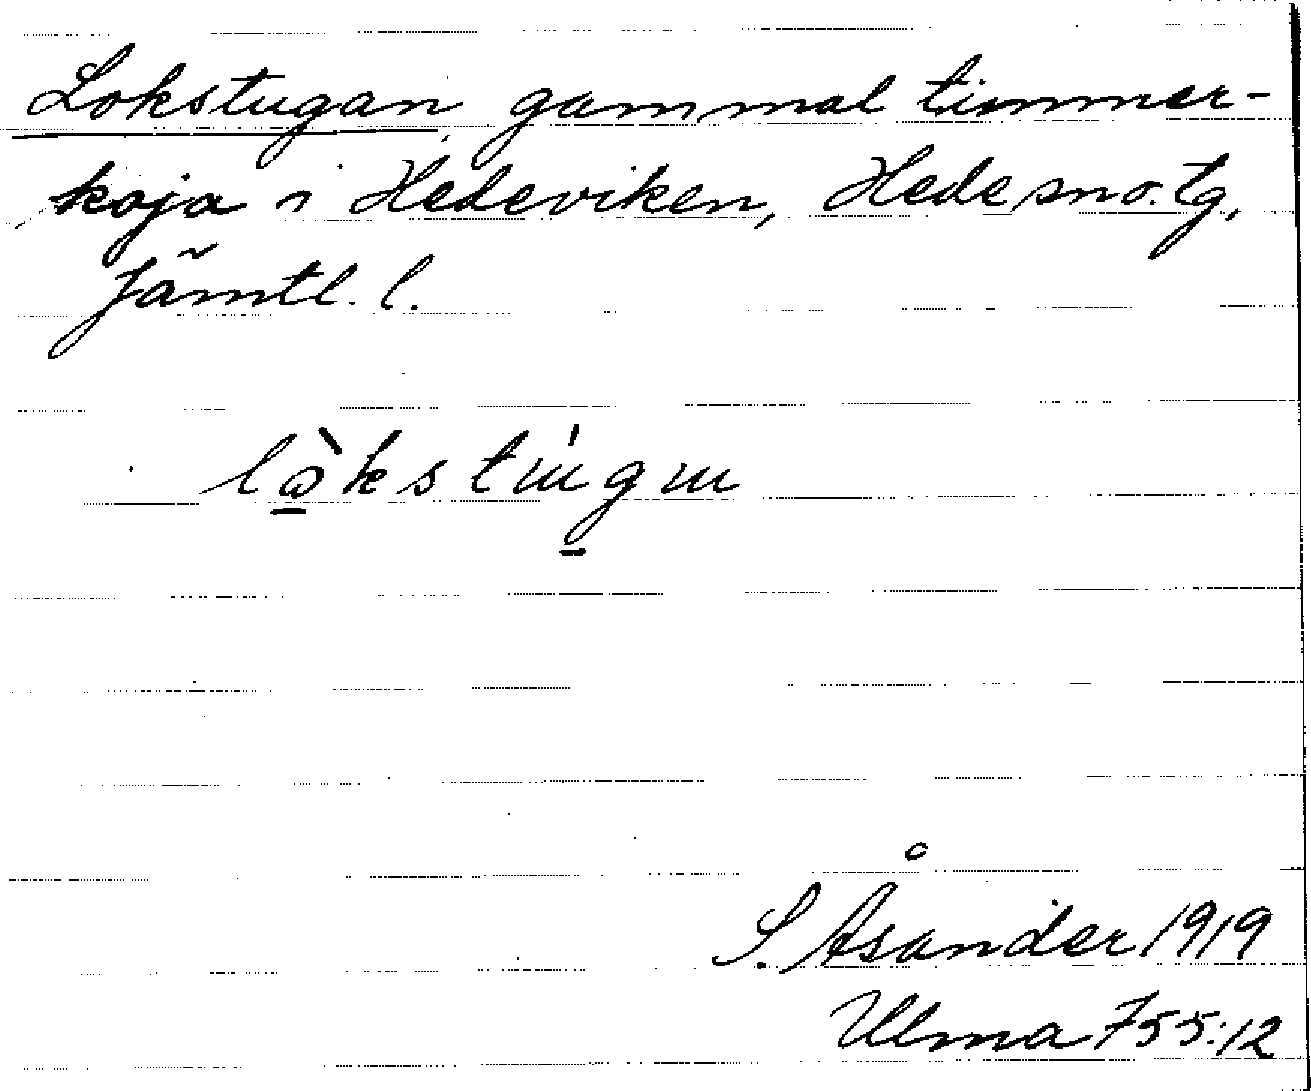 Lokstugan, gammal timmer-
koja i Hedeviken, Hede sn o. tg,
Jämtl. l.
S. Åsander 1919
Ulma 755:12